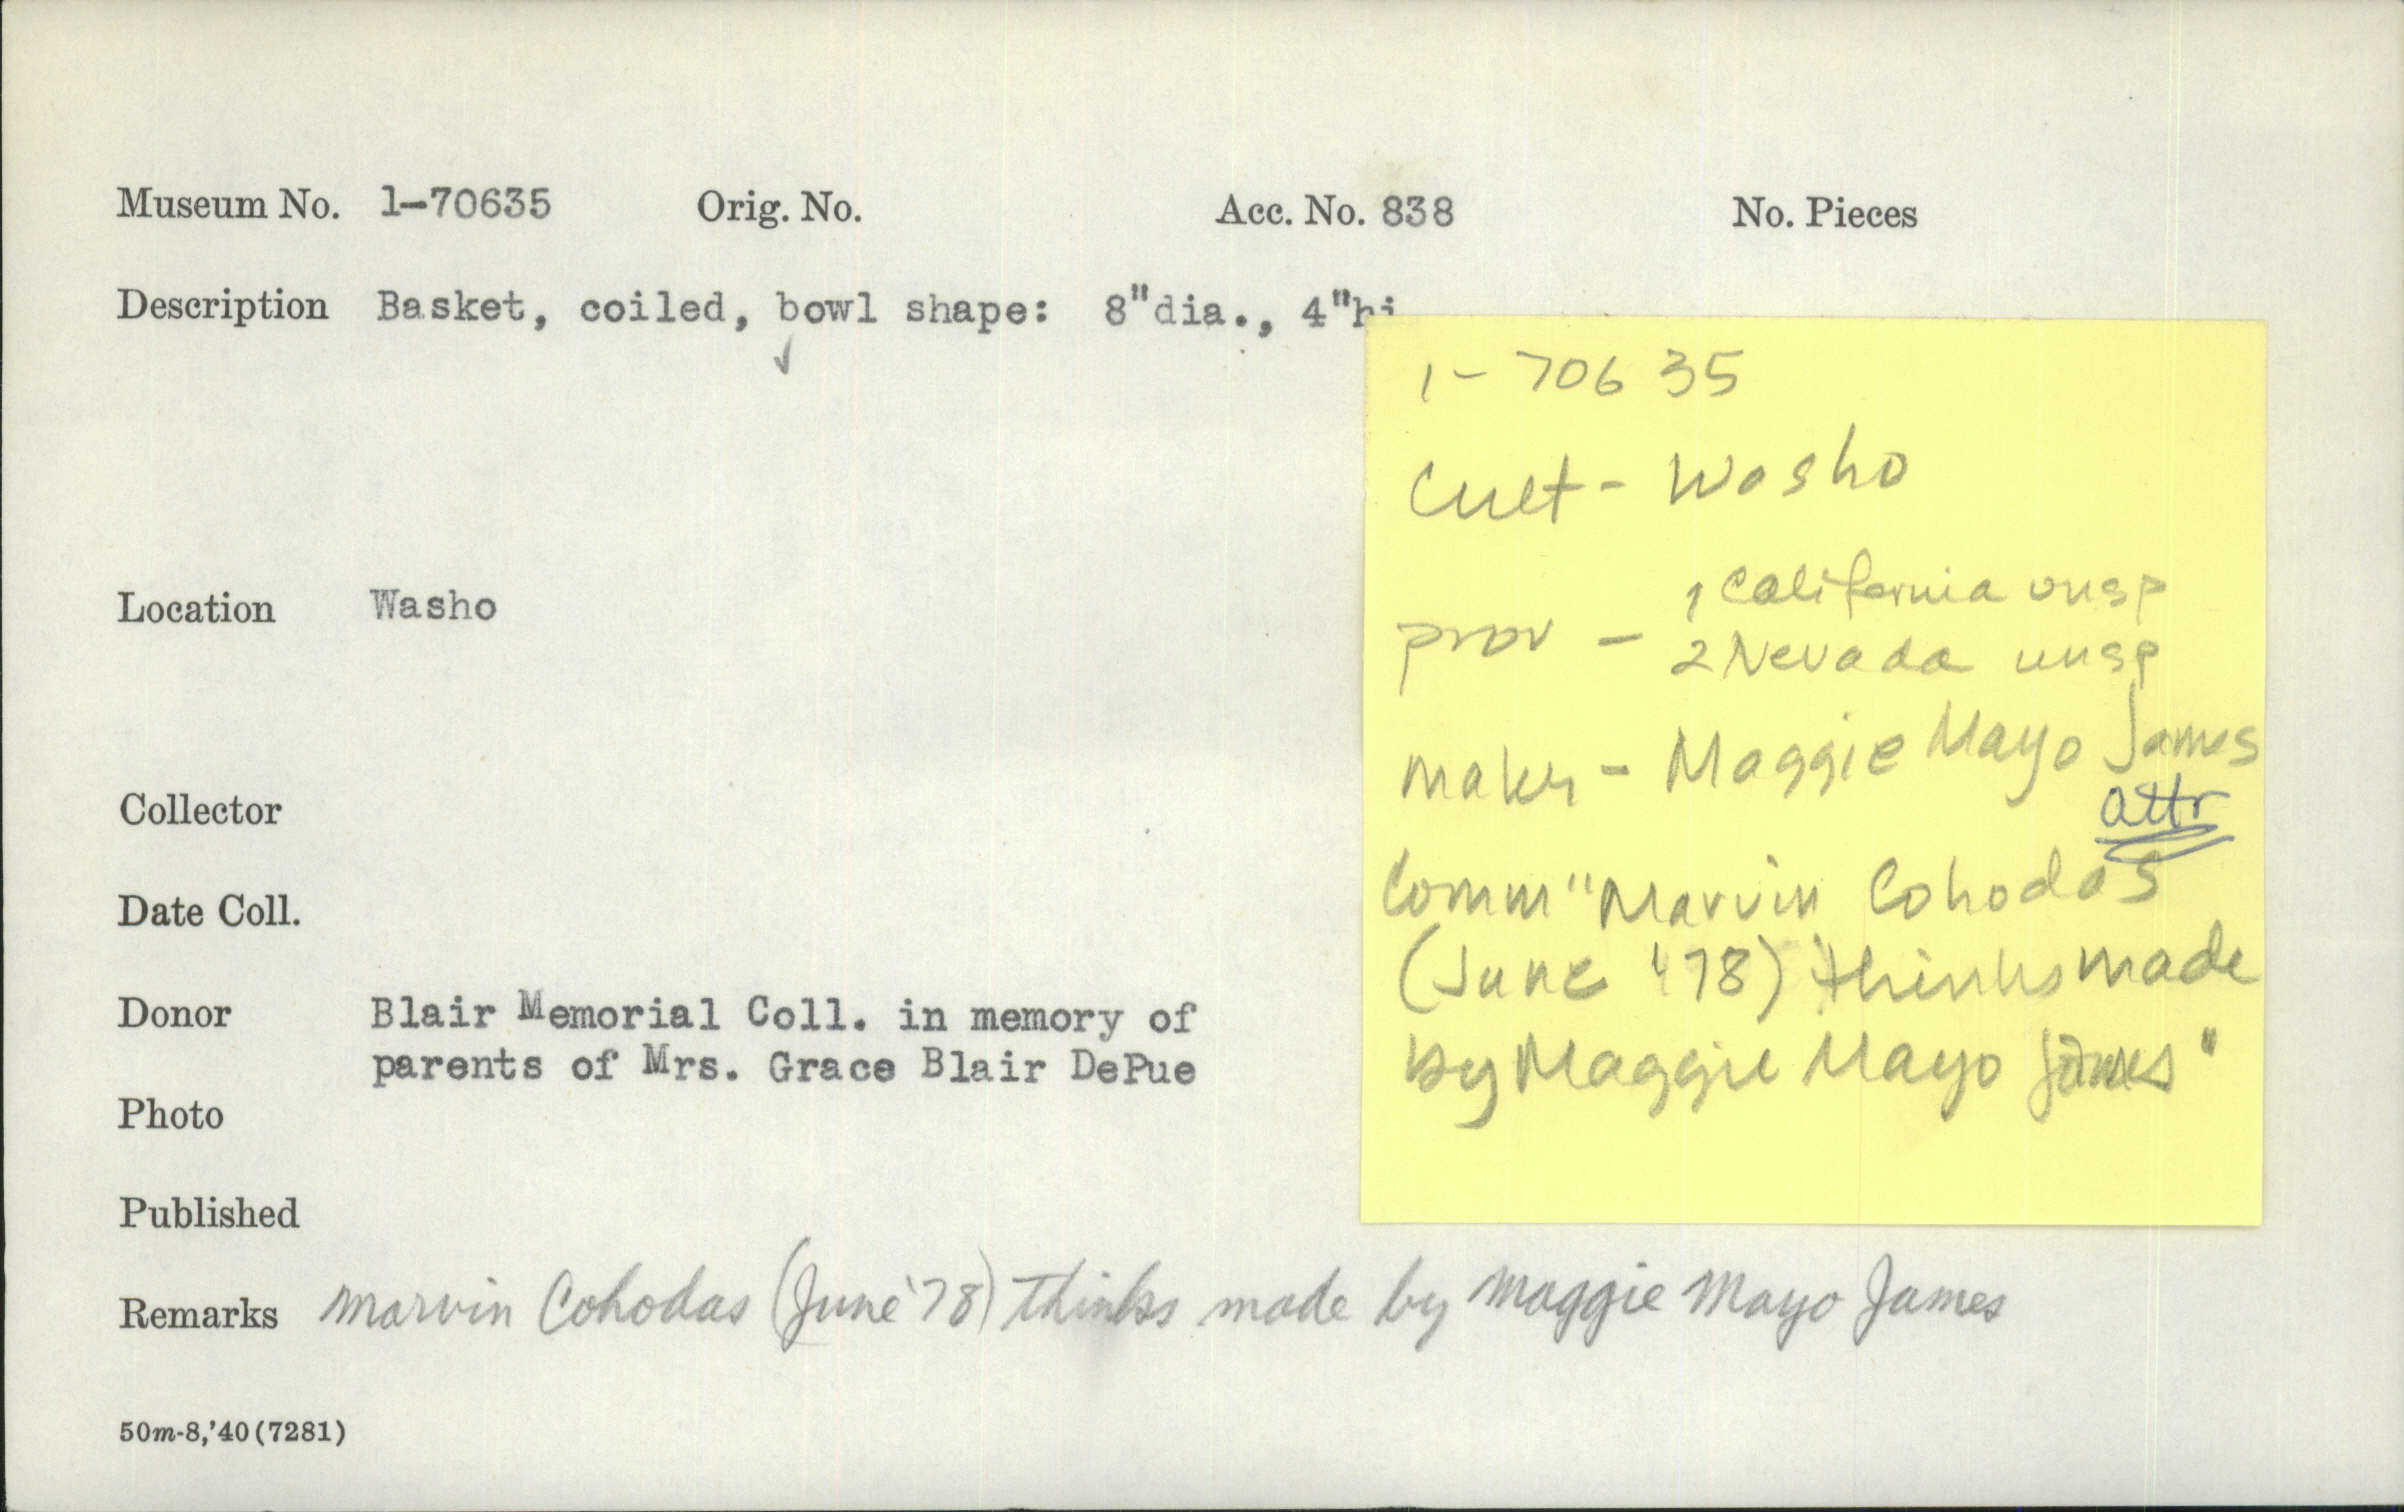 Museum No. 1-70635 Orig. No. Acc. No. 838 No. Pieces
Description Basket, coiled, bowl shape: 8"dia., 4"hi
1-70635
Cult - Washo
Location Washo
prov - 1 California unsp
2 Nevada unsp
maker - Maggie Mayo James
attr
Collector
Comm "Marvin Cohodas
Date Coll.
(June '78) thinks made
by Maggie Mayo James"
Donor Blair Memorial Coll. in memory of
parents of Mrs. Grace Blair DePue
Photo
Published
Remarks Marvin Cohodas (June '78) thinks made by Maggie Mayo James
50m-8,'40(7281)